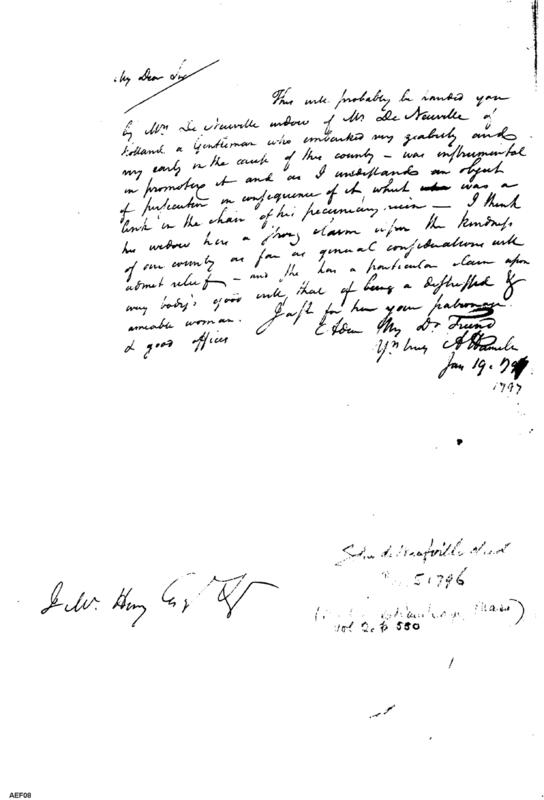 My Dear Sir
This will probably be handed you
by Mrs De Neuville widow of Mr De Neuville of
Holland a Gentleman who embarked very zealously and
very early in the cause of this country - was instrumental
in promoting it and as I understand an object
of persecution in consequence of it which was a
link in the chain of his pecuniary ruin - I think
his widow has a strong claim upon the kindness
of our country as far as general considerations will
admit relief - and she has a particular claim upon
every body's good will, that of being a distressed &
amiable woman. I ask for her your patronage
& good offices
Adieu My Dr Friend
Yrs truly A Hamilton
Jan 19. 
1797
Wm. Esqr
died
5 1796
Mass)
vol 2. p 550
AEF08